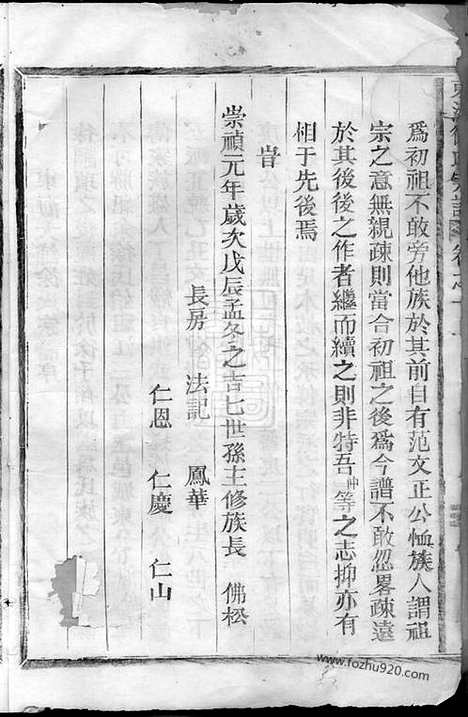 為初祖不敢旁他族於其前自有范文正公恤族人謂祖
宗之意無親疎則當合初祖之後為今譜不敢忽畧疎遠
於其後後之作者繼而續之則非特吾忡等之志抑亦有
相于先後焉
旹
崇禎元年歲次戊辰孟冬之吉七世孫主修族長 佛松
長房 法記 鳳華
仁恩 仁慶 仁山
www.fozhu920.com